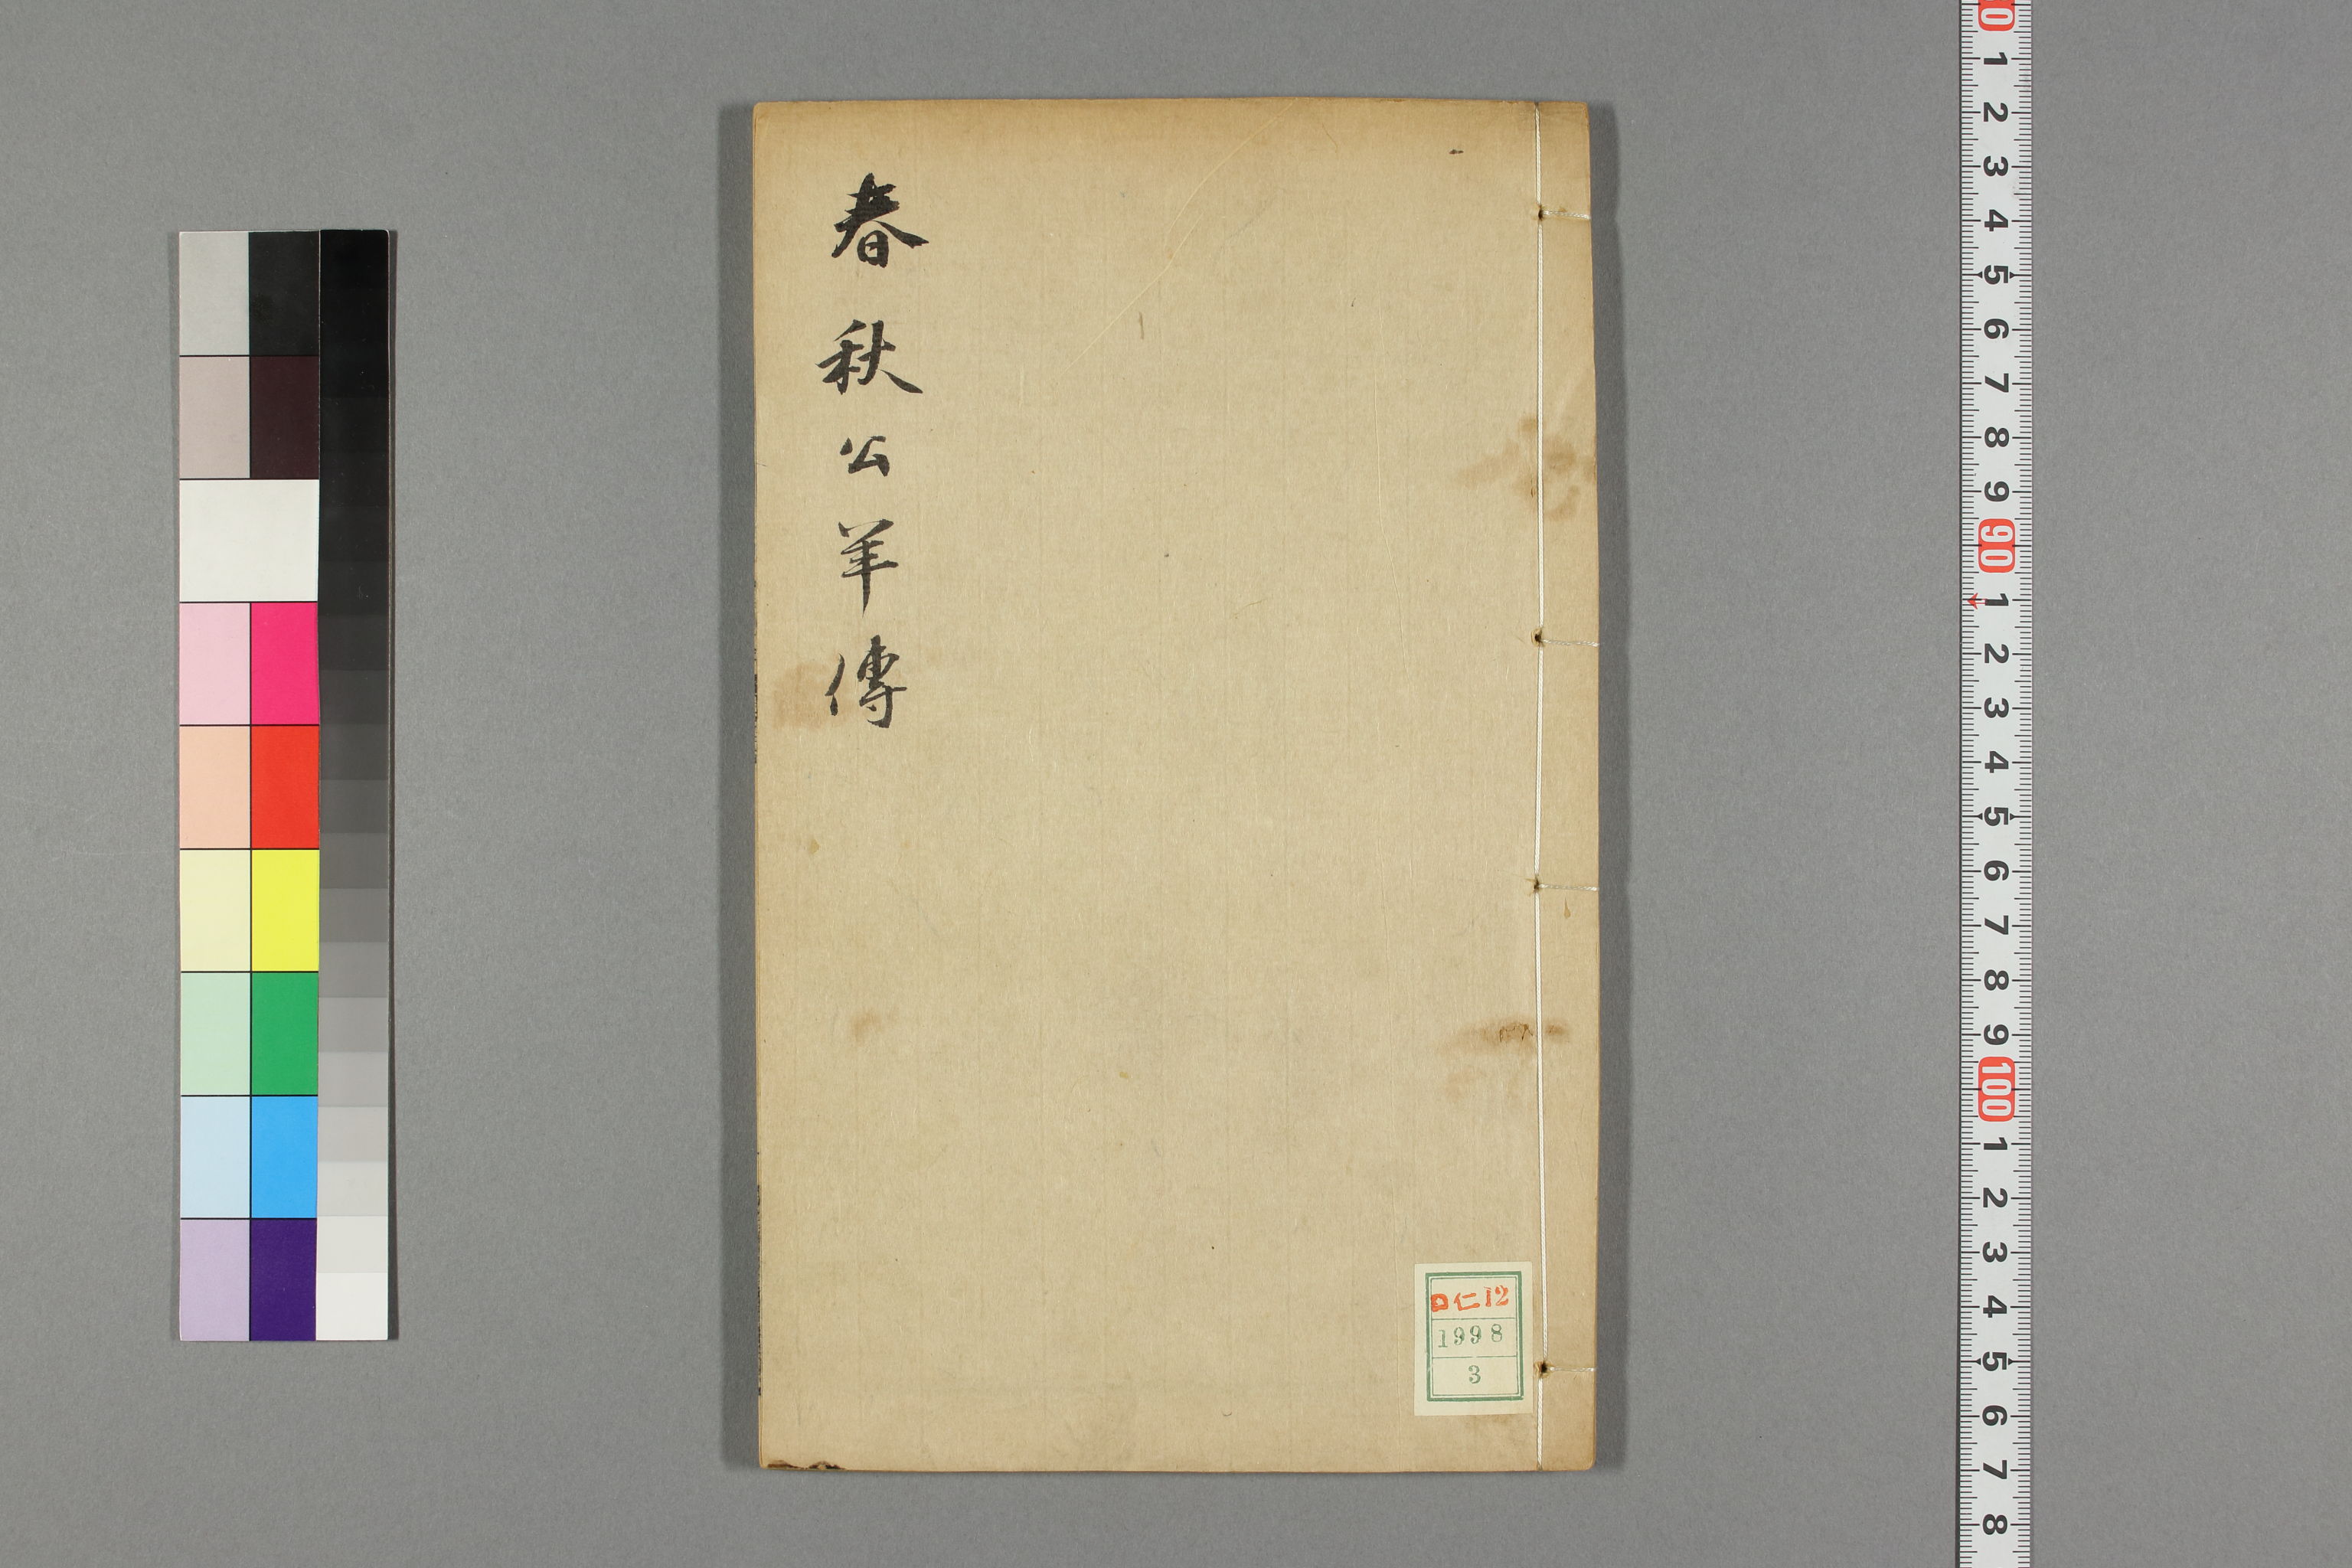 春秋公羊傳
口仁12
1998
3
0
1
2
3
4
5
6
7
8
9
90
1
2
3
4
5
6
7
8
9
100
1
2
3
4
5
6
7
8